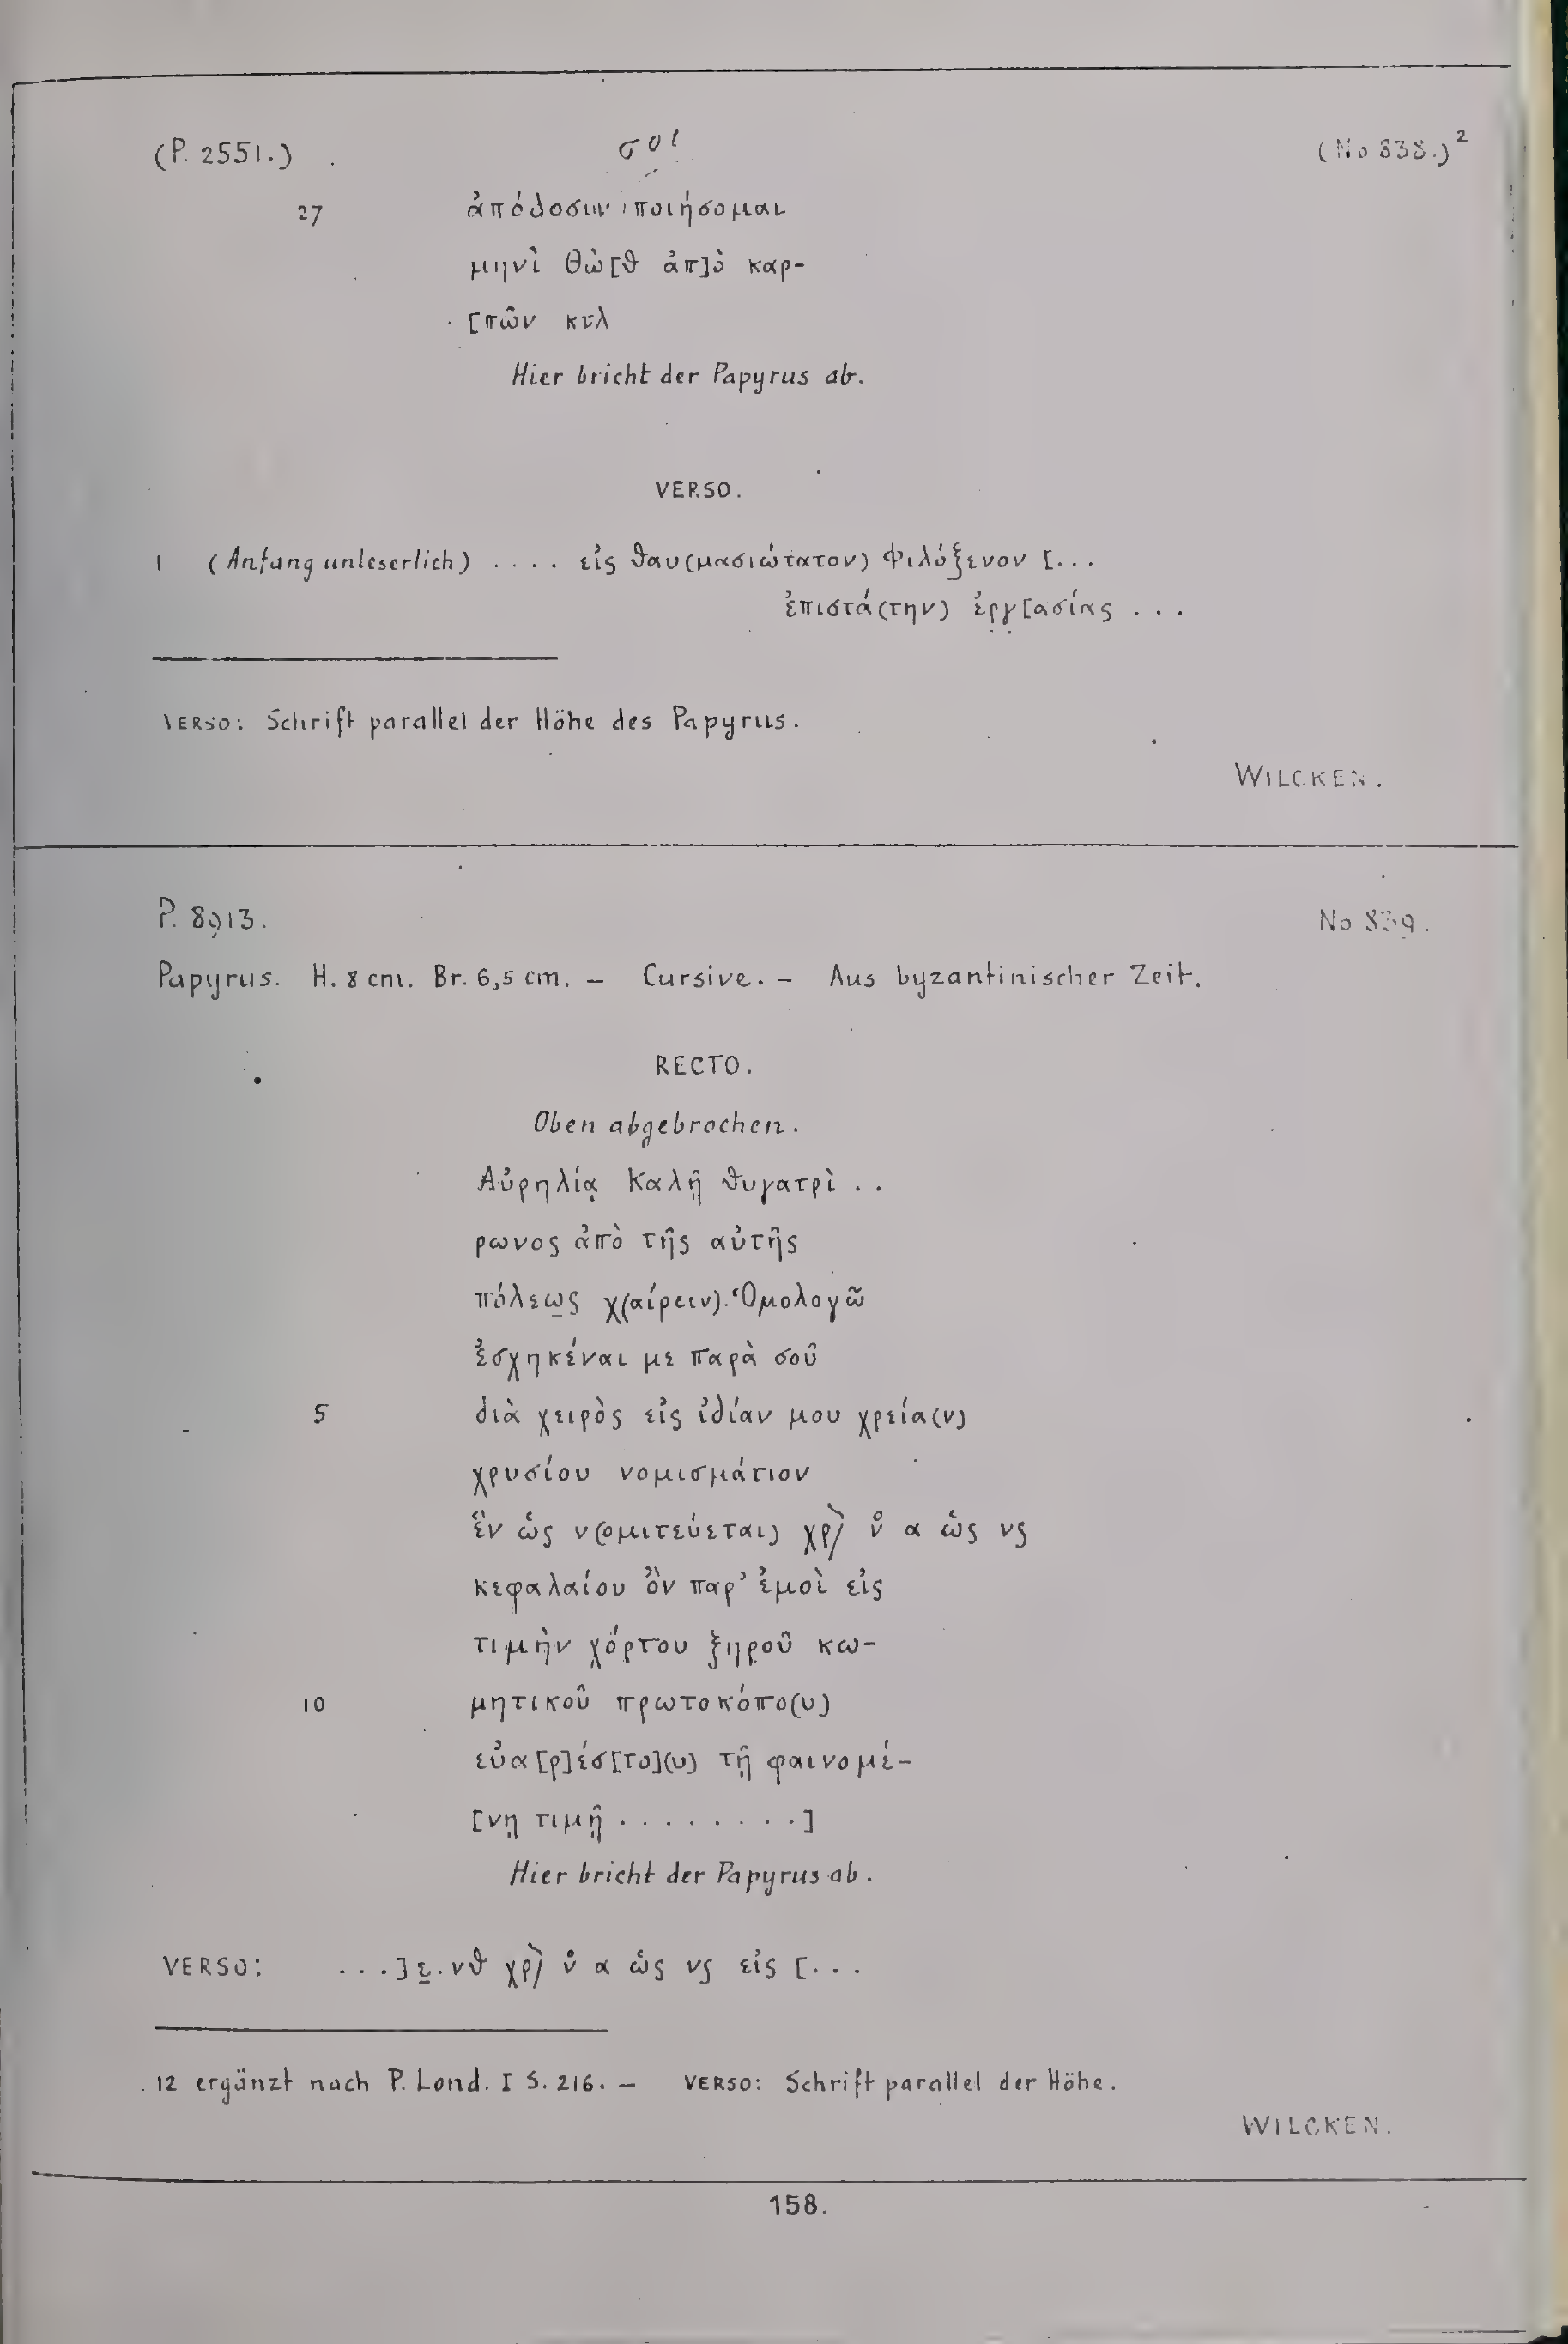 (P. 2551.) σοι (No 838.)²
27 ἀπόδοσιν ποιήσομαι
μηνὶ Θὼ[θ ἀπ]ὸ καρ-
[πῶν κτλ
Hier bricht der Papyrus ab.
VERSO.
1 (Anfang unleserlich) .... εἰς θαυ(μασιώτατον) Φιλόξενον [...
ἐπιστά(την) ἐργ[ασίας ...
VERSO: Schrift parallel der Höhe des Papyrus.
WILCKEN.
P. 8913. No 839.
Papyrus. H. 8 cm. Br. 6,5 cm. – Cursive. – Aus byzantinischer Zeit.
RECTO.
Oben abgebrochen.
Αὐρηλίᾳ Καλῇ θυγατρὶ ..
ρωνος ἀπὸ τῆς αὐτῆς
πόλεω̲ς χ(αίρειν). Ὁμολογῶ
ἐσχηκέναι με παρὰ σοῦ
5 διὰ χειρὸς εἰς ἰδίαν μου χρεία(ν)
χρυσίου νομισμάτιον
ἓν ὡς ν(ομιτεύεται) χρ) ν̊ α ὡς νϛ
κεφαλαίου ὂν παρ’ ἐμοὶ εἰς
τιμὴν χόρτου ξηροῦ κω-
10 μητικοῦ πρωτοκόπο(υ)
εὐα[ρ]έσ[το](υ) τῇ φαινομέ-
[νῃ τιμῇ ........]
Hier bricht der Papyrus ab.
VERSO: ...]ε̲.νθ χρ) ν̊ α ὡς νϛ εἰς [...
12 ergänzt nach P. Lond. I S. 216. – VERSO: Schrift parallel der Höhe.
WILCKEN.
158.